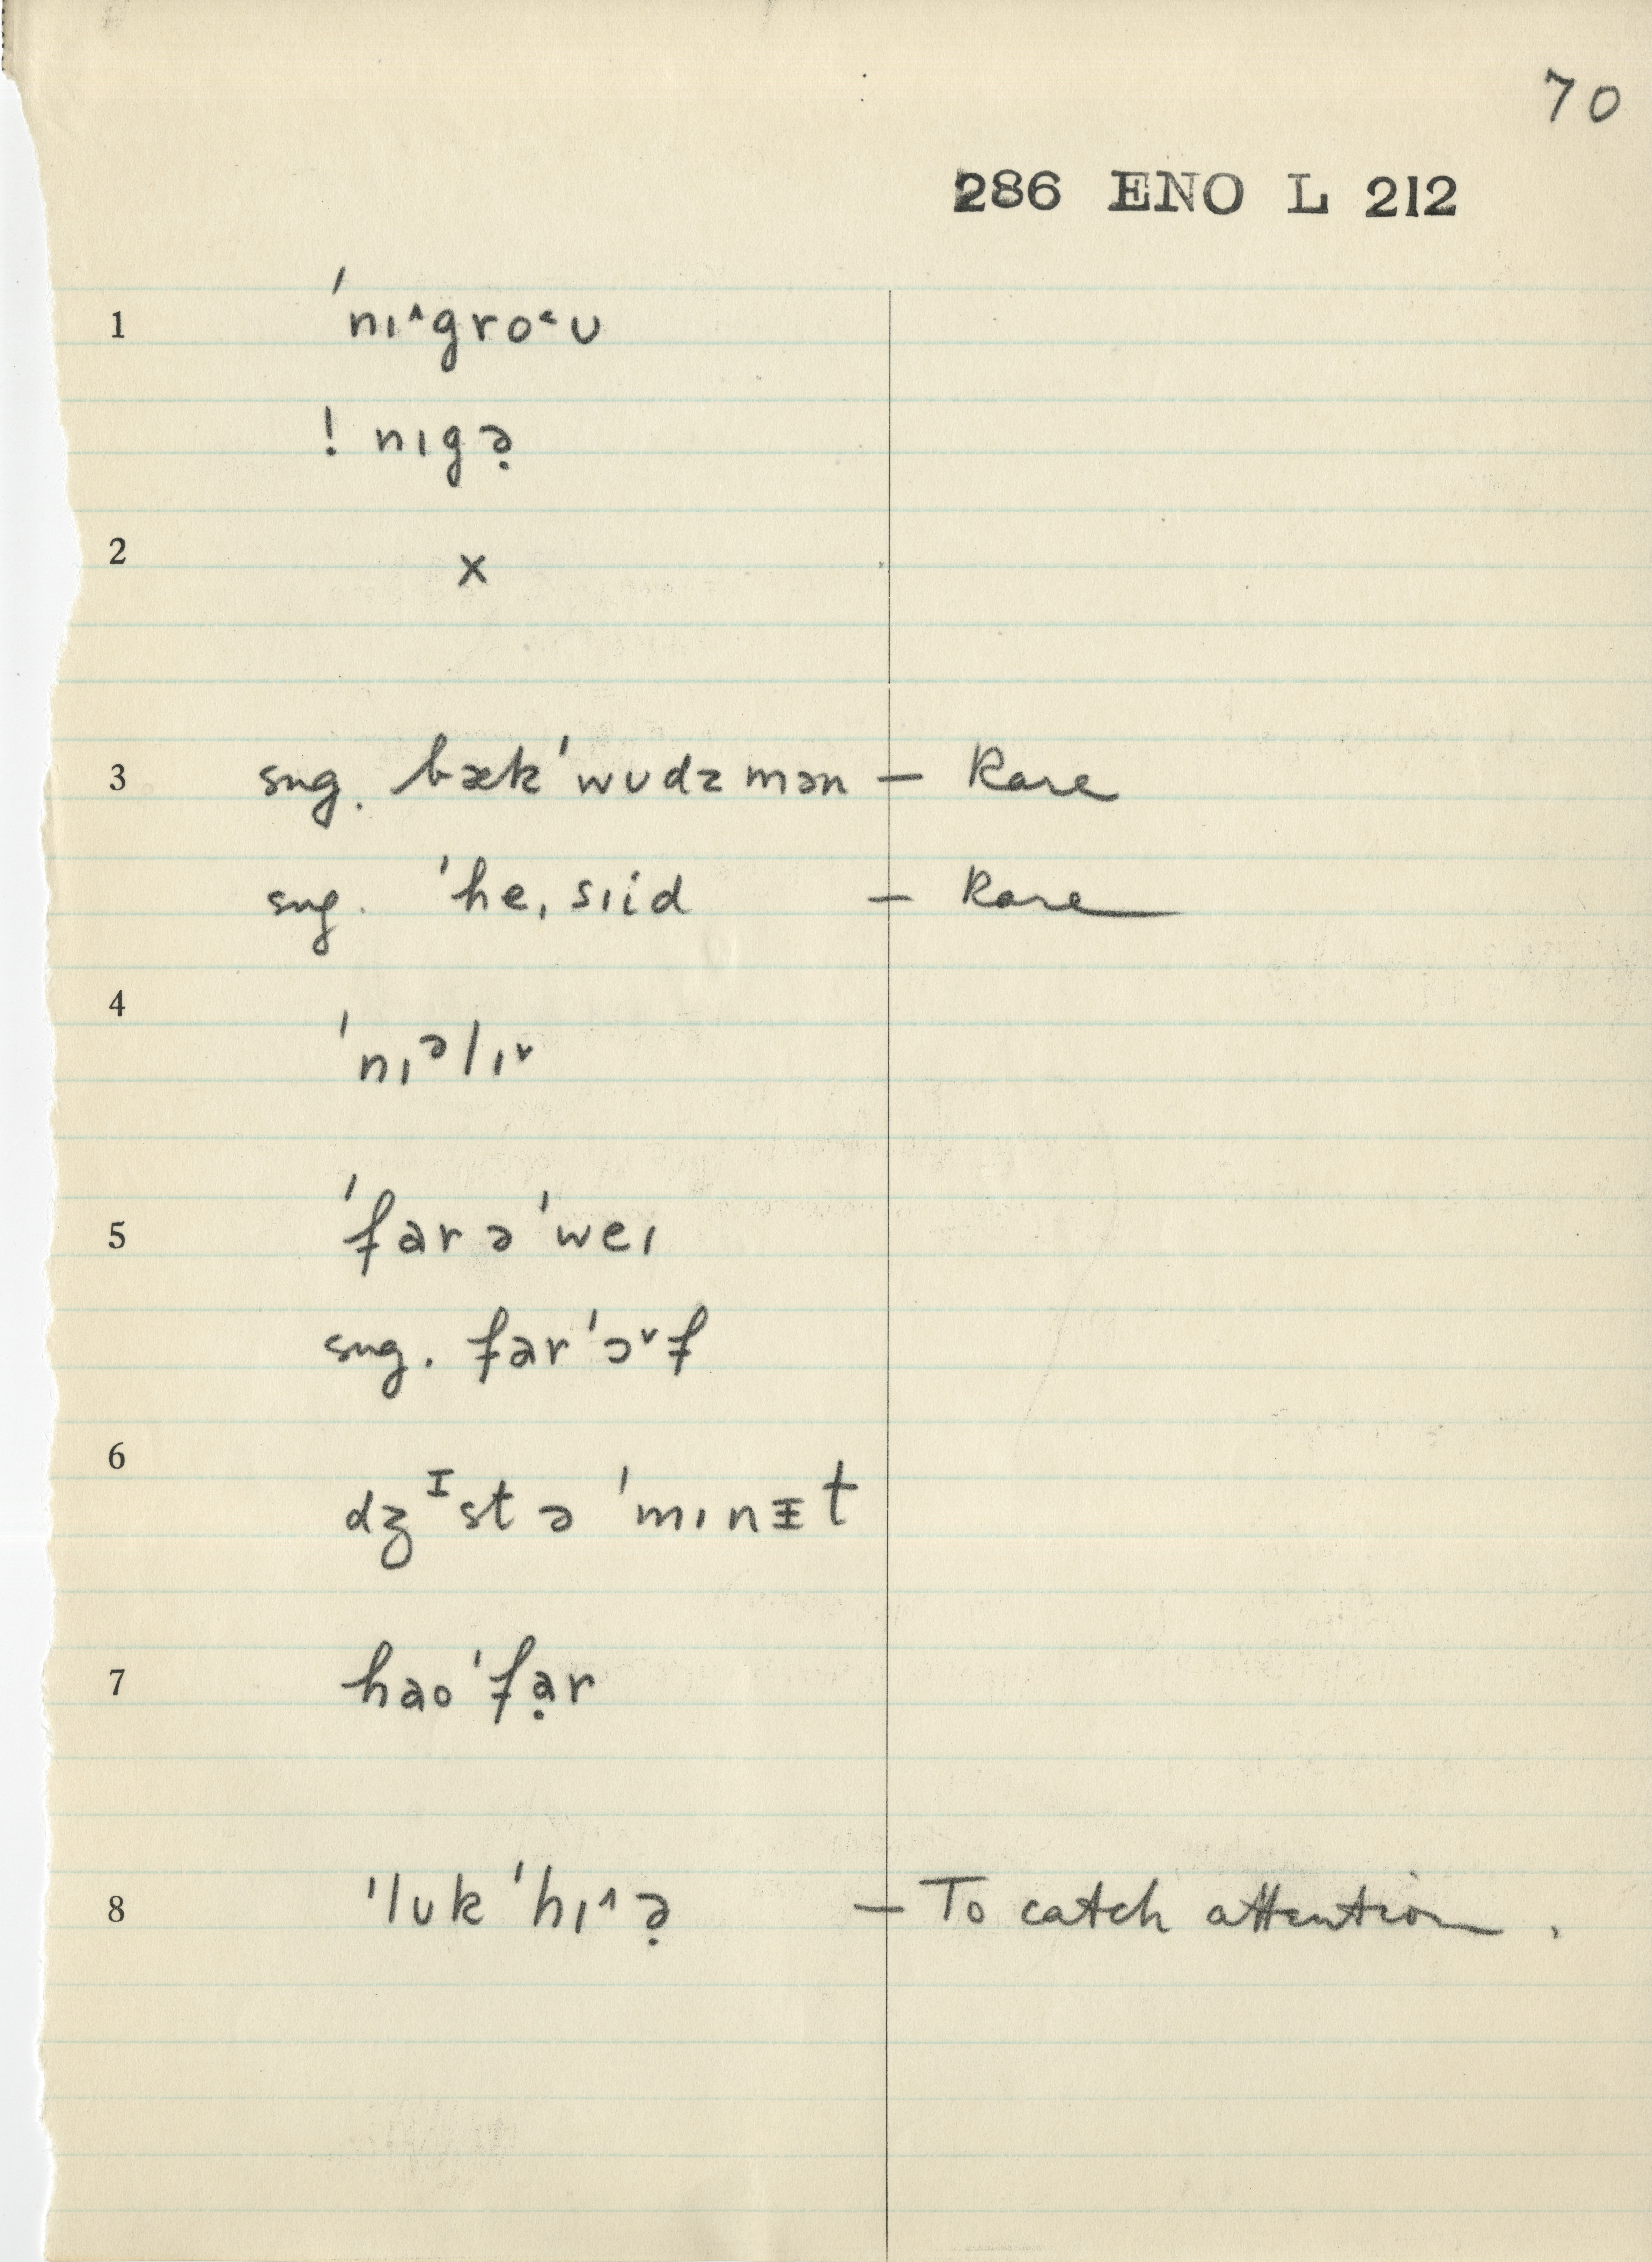 70
286 ENO L 212
1 ˈnɪ˄gro˂ʊ
! nɪgə̣
2 x
3 sug. bækˈwʊdzmən – Rare
sug. ˈheˌsɪid – Rare
4 ˈnɪᵊlɪ˅
5 ˈfar əˈweɪ
sug. farˈɔ˅f
6 dʒᶦst ə ˈmɪnɪ̵t
7 haoˈfạr
8 ˈlʊk ˈhɪ˄ə̣ – To catch attention.